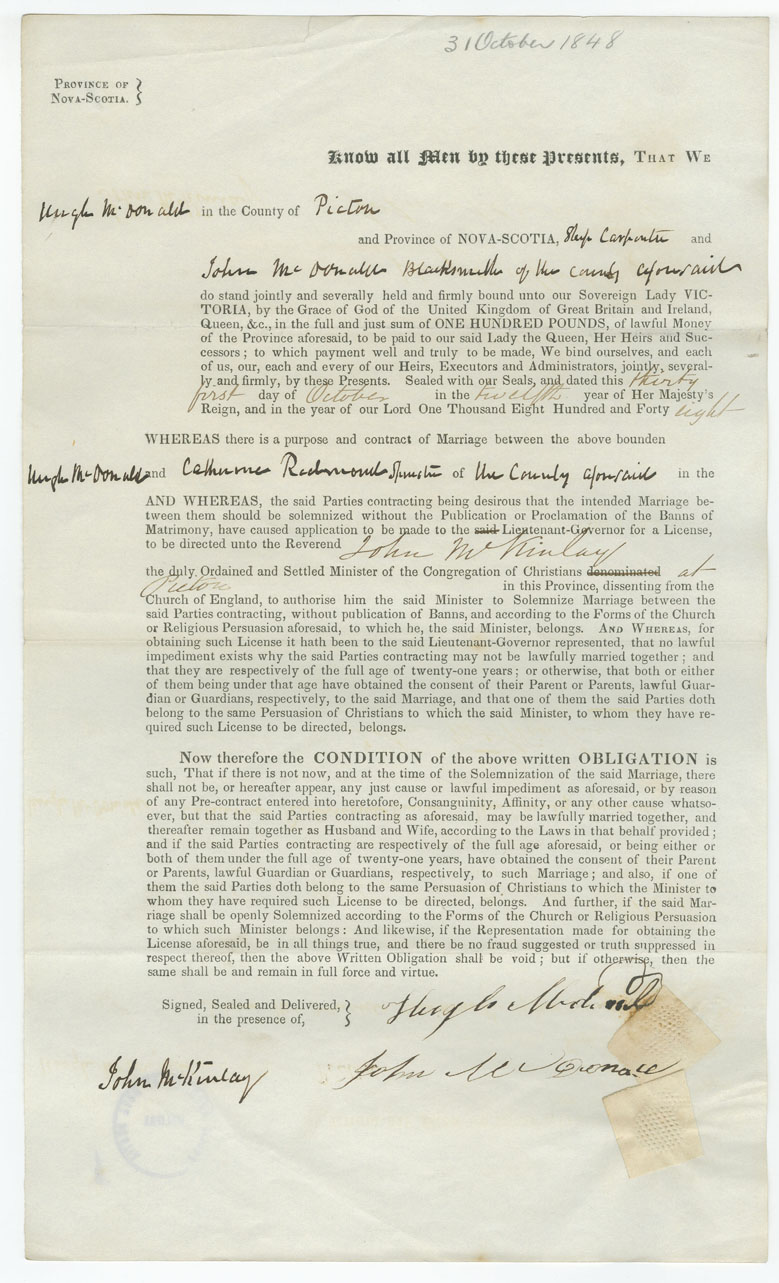 31 October 1848
PROVINCE OF
NOVA-SCOTIA.
Know all Men by these Presents, THAT WE
Hugh McDonald in the County of Picton
and Province of NOVA-SCOTIA, Ship Carpenter and
John McDonald Blacksmith of the County aforesaid
do stand jointly and severally held and firmly bound unto our Sovereign Lady VIC-
TORIA, by the Grace of God of the United Kingdom of Great Britain and Ireland,
Queen, &c., in the full and just sum of ONE HUNDRED POUNDS, of lawful Money
of the Province aforesaid, to be paid to our said Lady the Queen, Her Heirs and Suc-
cessors; to which payment well and truly to be made, We bind ourselves, and each
of us, our, each and every of our Heirs, Executors and Administrators, jointly, several-
ly and firmly, by these Presents. Sealed with our Seals, and dated this thirty
first day of October in the twelfth year of Her Majesty's
Reign, and in the year of our Lord One Thousand Eight Hundred and Forty eight
WHEREAS there is a purpose and contract of Marriage between the above bounden
Hugh McDonald and Catherine Redmond Spinster of the County aforesaid in the
AND WHEREAS, the said Parties contracting being desirous that the intended Marriage be-
tween them should be solemnized without the Publication or Proclamation of the Banns of
Matrimony, have caused application to be made to the said Lieutenant-Governor for a License,
to be directed unto the Reverend John McKinlay
the duly Ordained and Settled Minister of the Congregation of Christians denominated at
Picton in this Province, dissenting from the
Church of England, to authorise him the said Minister to Solemnize Marriage between the
said Parties contracting, without publication of Banns, and according to the Forms of the Church
or Religious Persuasion aforesaid, to which he, the said Minister, belongs. AND WHEREAS, for
obtaining such License it hath been to the said Lieutenant-Governor represented, that no lawful
impediment exists why the said Parties contracting may not be lawfully married together; and
that they are respectively of the full age of twenty-one years; or otherwise, that both or either
of them being under that age have obtained the consent of their Parent or Parents, lawful Guar-
dian or Guardians, respectively, to the said Marriage, and that one of them the said Parties doth
belong to the same Persuasion of Christians to which the said Minister, to whom they have re-
quired such License to be directed, belongs.
Now therefore the CONDITION of the above written OBLIGATION is
such, That if there is not now, and at the time of the Solemnization of the said Marriage, there
shall not be, or hereafter appear, any just cause or lawful impediment as aforesaid, or by reason
of any Pre-contract entered into heretofore, Consanguinity, Affinity, or any other cause whatso-
ever, but that the said Parties contracting as aforesaid, may be lawfully married together, and
thereafter remain together as Husband and Wife, according to the Laws in that behalf provided;
and if the said Parties contracting are respectively of the full age aforesaid, or being either or
both of them under the full age of twenty-one years, have obtained the consent of their Parent
or Parents, lawful Guardian or Guardians, respectively, to such Marriage; and also, if one of
them the said Parties doth belong to the same Persuasion of Christians to which the Minister to
whom they have required such License to be directed, belongs. And further, if the said Mar-
riage shall be openly Solemnized according to the Forms of the Church or Religious Persuasion
to which such Minister belongs: And likewise, if the Representation made for obtaining the
License aforesaid, be in all things true, and there be no fraud suggested or truth suppressed in
respect thereof, then the above Written Obligation shall be void; but if otherwise, then the
same shall be and remain in full force and virtue.
Signed, Sealed and Delivered,
in the presence of,
Hugh McDonald
John McKinlay
John McDonald